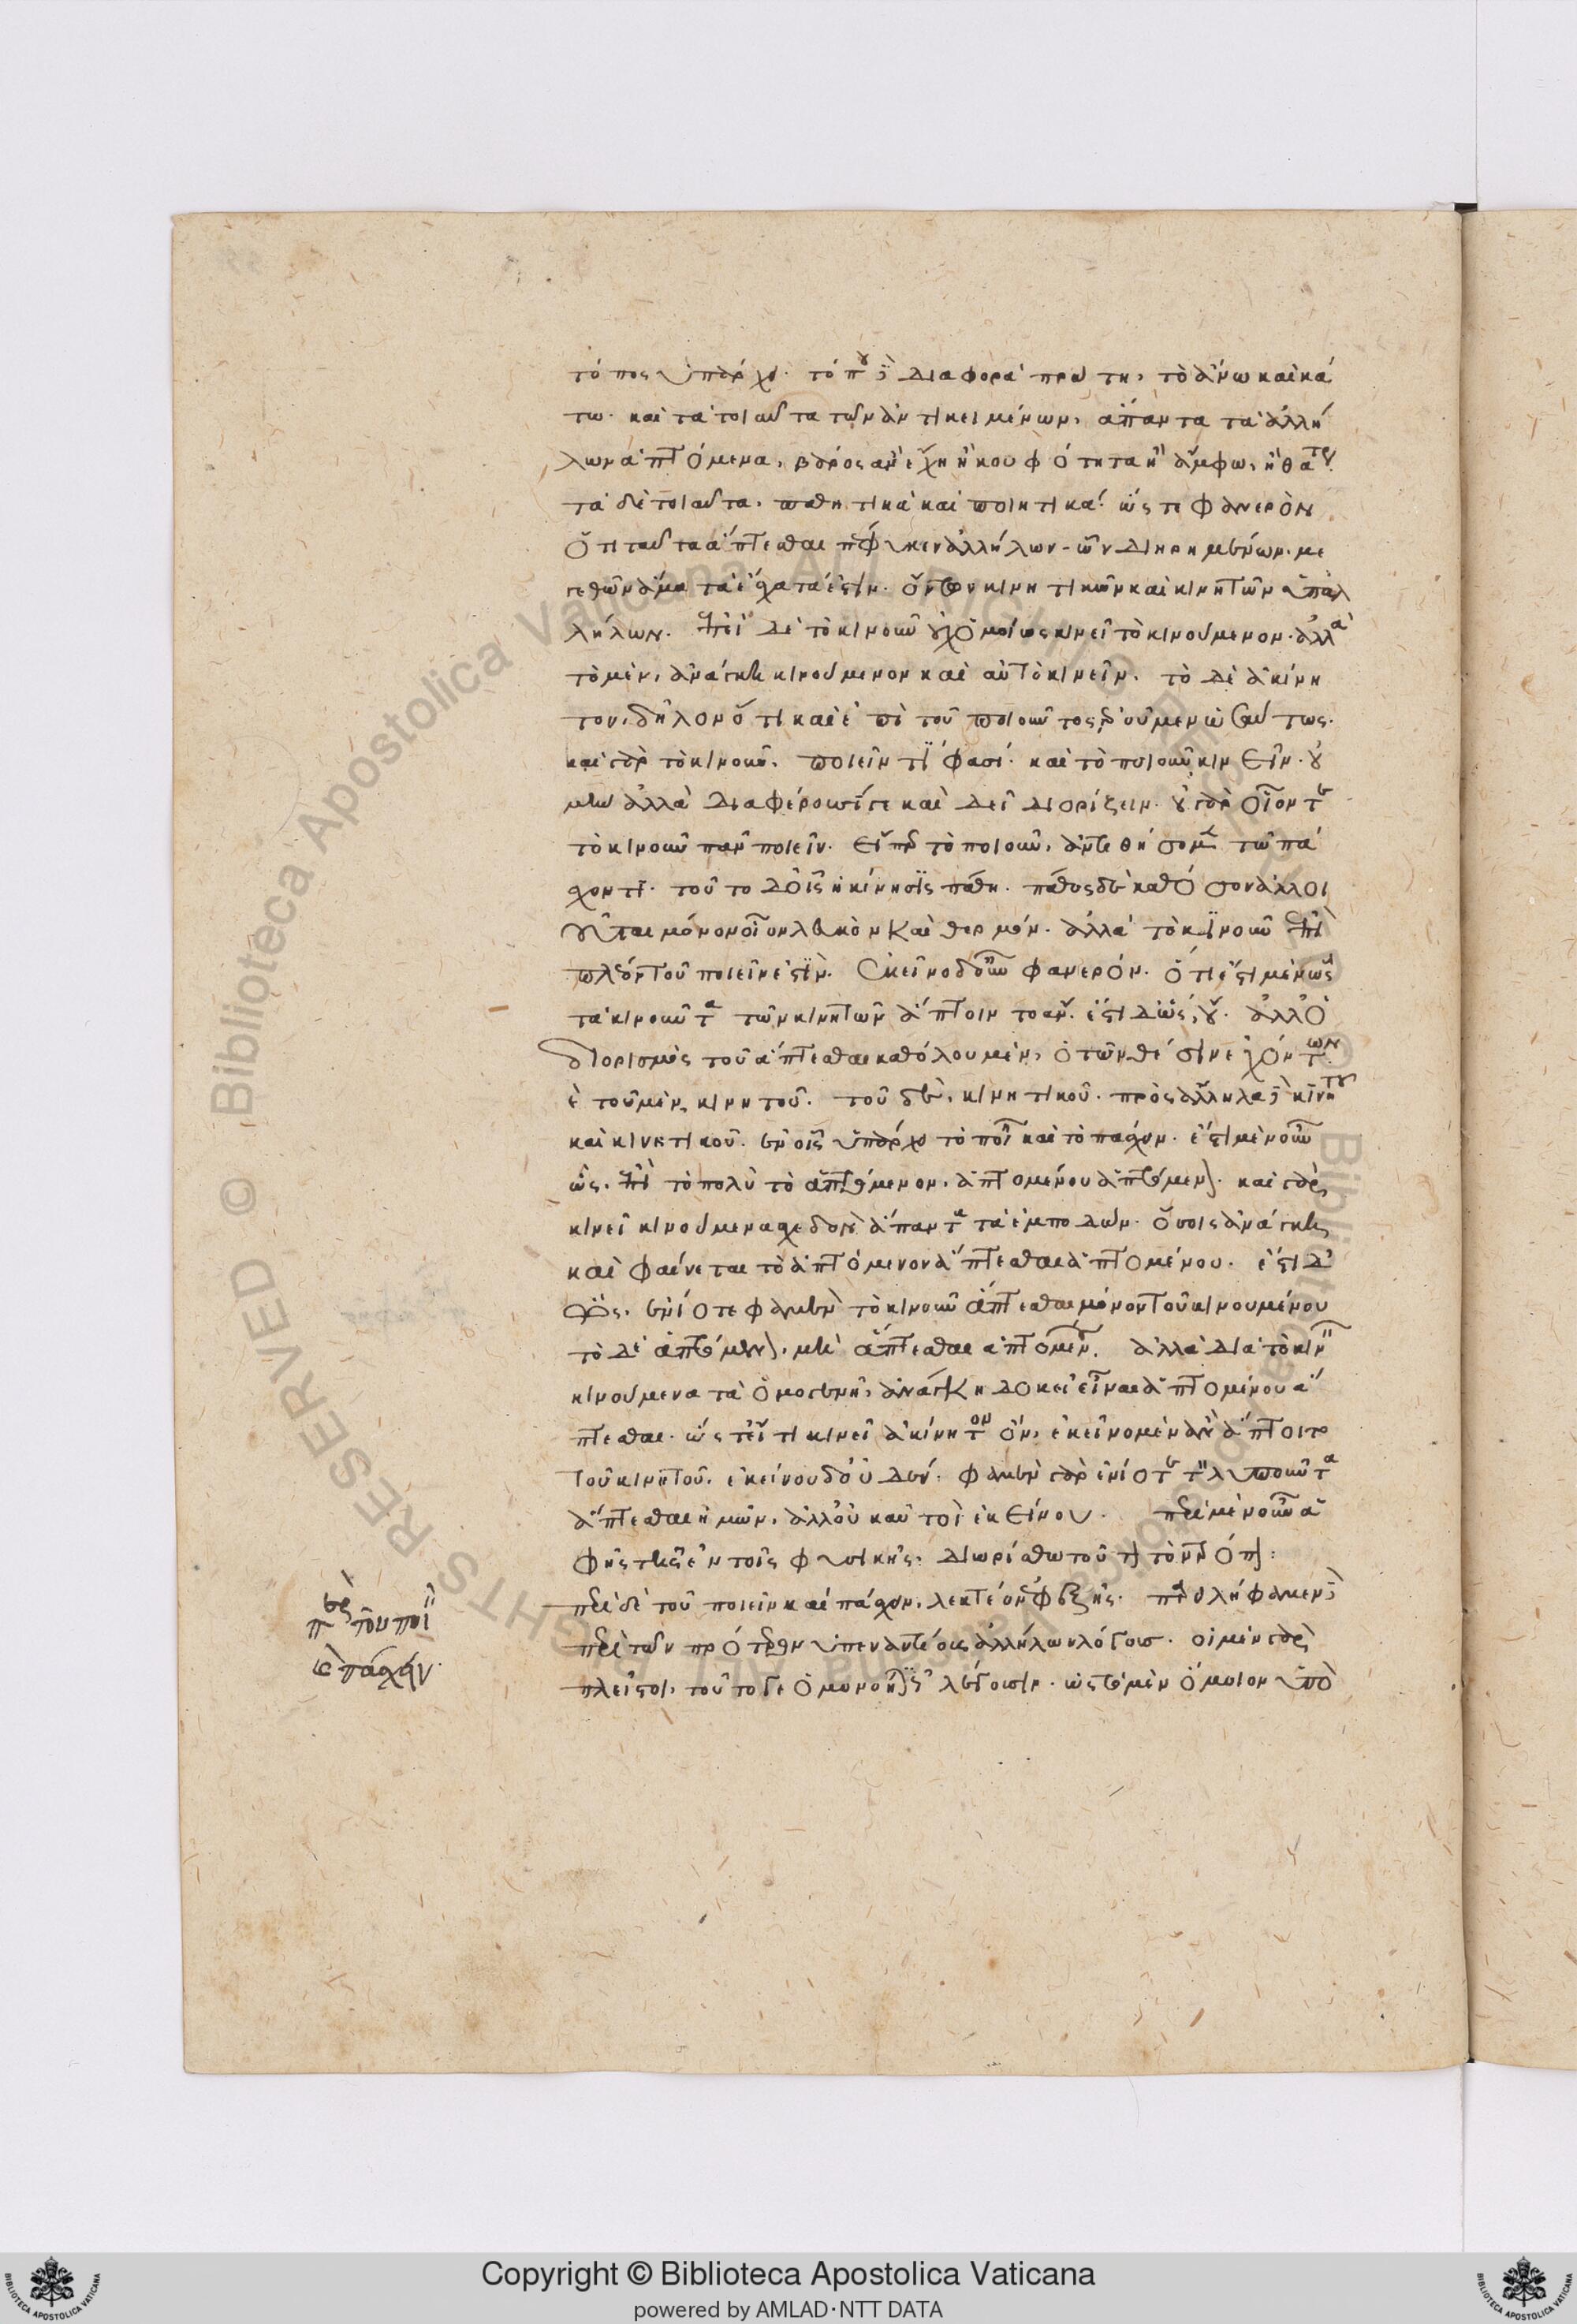 τόπος ὑπάρχει. τόπου δὲ διαφορὰ πρώτη, τὸ ἄνω καὶ κά
τω. καὶ τὰ τοιαῦτα τῶν ἀντικειμένων, ἅπαντα τὰ ἀλλή
λων ἁπτόμενα, βάρος ἂν ἔχη ἢ κουφότητα ἢ ἄμφω, ἢ θάτερον.
τὰ δὲ τοιαῦτα, παθητικὰ καὶ ποιητικά. ὥστε φανερὸν
ὅτι ταῦτα ἅπτεσθαι πέφυκεν ἀλλήλων. ὧν διηρημένων με
γεθῶν ἅμα τὰ ἔσχατά ἐστιν. ὄντων κινητικῶν καὶ κινητῶν ὑπ' ἀλ
λήλων. ἐπεὶ δὲ τὸ κινοῦν οὐχ ὁμοίως κινεῖ τὸ κινούμενον. ἀλλὰ
τὸ μὲν, ἀνάγκη κινούμενον καὶ αὐτὸ κινεῖν. τὸ δὲ ἀκίνη
τον, δῆλον ὅτι καὶ ἐπὶ τοῦ ποιοῦντος ἐροῦμεν ὡσαύτως.
καὶ γὰρ τὸ κινοῦν, ποιεῖν τί φασι. καὶ τὸ ποιοῦν κινεῖν. οὐ
μὴν ἀλλὰ διαφέρουσί γε καὶ δεῖ διορίζειν. οὐ γὰρ οἷόν τε
τὸ κινοῦν πᾶν ποιεῖν. εἴπερ τὸ ποιοῦν, ἀντιθήσομεν τῷ πά
σχοντι. τοῦτο δ' οἷς ἡ κίνησις πάθη. πάθος δὲ καθ' ὅσον ἀλλοι
οῦται μόνον οἷον λευκὸν καὶ θερμόν. ἀλλὰ τὸ κινοῦν ἐπὶ
πλέον τοῦ ποιεῖν ἐστίν. ἐκεῖνο δ' οὖν φανερόν. ὅτι ἔστι μὲν ὡς
τὰ κινοῦντα τῶν κινητῶν ἅπτοιντο ἄν. ἔστι δ' ὡς, οὔ. ἀλλ' ὁ
διορισμὸς τοῦ ἅπτεσθαι καθόλου μὲν, ὁ τῶν θέσιν ἐχόντων
καὶ τοῦ μὲν, κινητοῦ. τοῦ δὲ, κινητικοῦ. πρὸς ἄλληλα δὲ κινητοῦ
καὶ κινητικοῦ. ἐν οἷς ὑπάρχει τὸ ποιεῖν καὶ τὸ πάσχειν. ἔστι μὲν οὖν
ὡς, ἐπὶ τὸ πολὺ τὸ ἁπτόμενον, ἁπτομένου ἁπτόμενον. καὶ γὰρ
κινεῖ κινούμενα σχεδὸν ἅπαντα τὰ ἐμποδών. ὅσοις ἀνάγκη
καὶ φαίνεται τὸ ἁπτόμενον ἅπτεσθαι ἁπτομένου. ἔστι δ'
ὡς, ἐνίοτέ φαμεν τὸ κινοῦν ἅπτεσθαι μόνον τοῦ κινουμένου
τὸ δὲ ἁπτόμενον, μὴ ἅπτεσθαι ἁπτομένου. ἀλλὰ διὰ τὸ κινεῖν
κινούμενα τὰ ὁμογενῆ, ἀνάγκη δοκεῖ εἶναι ἁπτομένου ἅ
πτεσθαι. ὥστ' εἴ τι κινεῖ ἀκίνητον ὄν, ἐκεῖνο μὲν ἂν ἅπτοιτο
τοῦ κινητοῦ. ἐκείνου δ' οὐδέν. φαμὲν γὰρ ἐνίοτε τὸν λυποῦντα
ἅπτεσθαι ἡμῶν, ἀλλ' οὐκ αὐτοὶ ἐκείνου. περὶ μὲν οὖν ἁ
φῆς τῆς ἐν τοῖς φυσικοῖς. διωρίσθω τοῦτον τὸν τρόπον:
περὶ δὲ τοῦ ποιεῖν καὶ πάσχειν, λεκτέον ἐφεξῆς. παρειλήφαμεν δὲ
περὶ τῶν πρότερον ὑπεναντίους ἀλλήλων λόγους. οἱ μὲν γὰρ
πλεῖστοι, τοῦτό γε ὁμονοητικῶς λέγουσιν. ὡς τὸ μὲν ὅμοιον ὑπὸ
περὶ τοῦ ποιεῖν
καὶ πάσχειν.